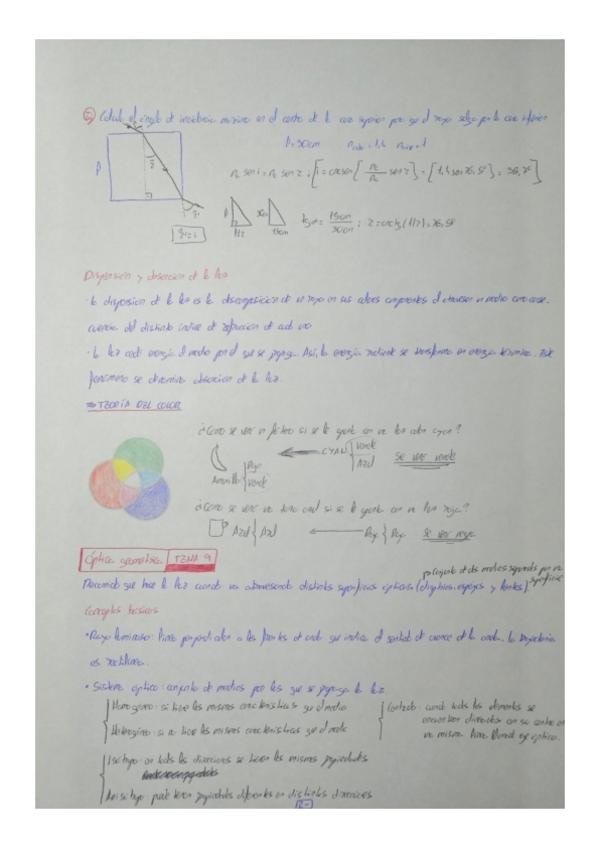 Calcula el ángulo de incidencia máximo en el centro de la cara superior para que el rayo salga por la cara inferior
l=30cm n =1,4 n =1
l
n sen i = n sen r
l l/2 30cm 15cm tg r = 15cm/30cm ; r = arctg (1/2) = 26,5º
Dispersión y absorción de la luz
· La dispersión de la luz es la descomposición de un rayo en sus colores componentes al atravesar un medio como conse-
cuencia del distinto índice de refracción de cada uno
· La luz cede energía al medio por el que se propaga. Así, la energía incidente se transforma en energía térmica. Este
fenómeno se denomina absorción de la luz.
⇒ TEORÍA DEL COLOR
¿Cómo se verá un plátano si se le ilumina con una luz color cyan?
Amarillo { Rojo Verde ← CYAN { Verde Azul Se verá verde
¿Cómo se verá una taza azul si se le ilumina con una luz roja?
Azul { Azul ← Roja { Roja Se verá negra
Óptica geométrica TEMA 9
conjunto de dos medios separados por una superficie
que hace la luz cuando va atravesando distintas superficies ópticas (dioptrios, espejos y lentes).
Conceptos básicos
· Rayo luminoso: línea perpendicular a los frentes de onda que indica el sentido de avance de la onda. La trayectoria
es rectilínea.
· Sistema óptico: conjunto de medios por los que se propaga la luz
Homogéneo: si tiene las mismas características que el medio
Heterogéneo: si no tiene las mismas características que el medio
Centrado: cuando todos los elementos se
encuentran alineados con su centro en
una misma línea llamada eje óptico.
Isótropo: en todas las direcciones se tienen las mismas propiedades
Anisótropo: puede tener propiedades diferentes en distintas direcciones